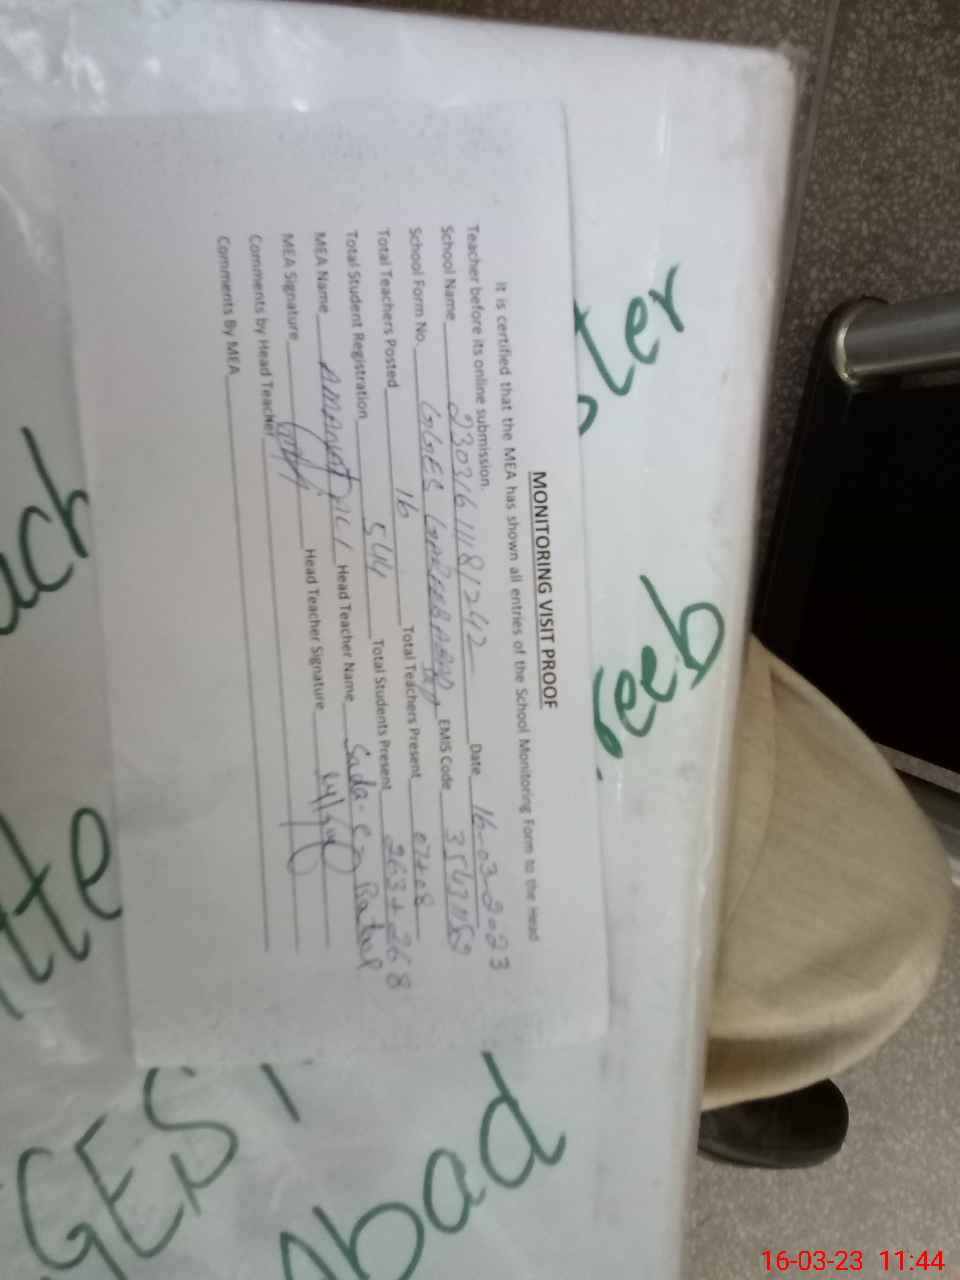 MONITORING VISIT PROOF
It is certified that the MEA has shown all entries of the School Monitoring Form to the Head
Teacher before its online submission.
School Name 230316111811242 Date 16-03-2023
School Form No. GGES GAREEBABAD, EMIS Code
Total Teachers Posted 16 Total Teachers Present 07+08
Total Student Registration 544 Total Students Present 263+268
MEA Name AMANAT ALI Head Teacher Name Sada-e
MEA Signature Head Teacher Signature
Comments by Head Teacher
Comments By MEA
ter
reeb
ach
tte
GGES
Abad
16-03-23 11:44